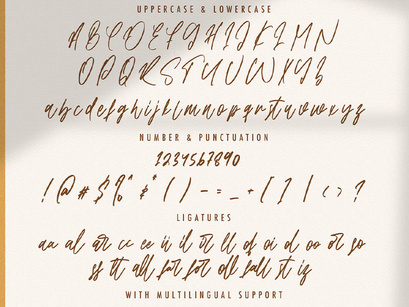 UPPERCASE & LOWERCASE
A B C D E F G H I J K L M N
O P Q R S T U V W X Y Z
a b c d e f g h i j k l m n o p q r s t u v w x y z
NUMBER & PUNCTUATION
1 2 3 4 5 6 7 8 9 0
! @ # $ % ^ & * ( ) - = _ + [ ] | < > ?
LIGATURES
aa al ar cc ee ii il ir ll of oi ol oo or so
ss tt all for for oll fall st iz
WITH MULTILINGUAL SUPPORT